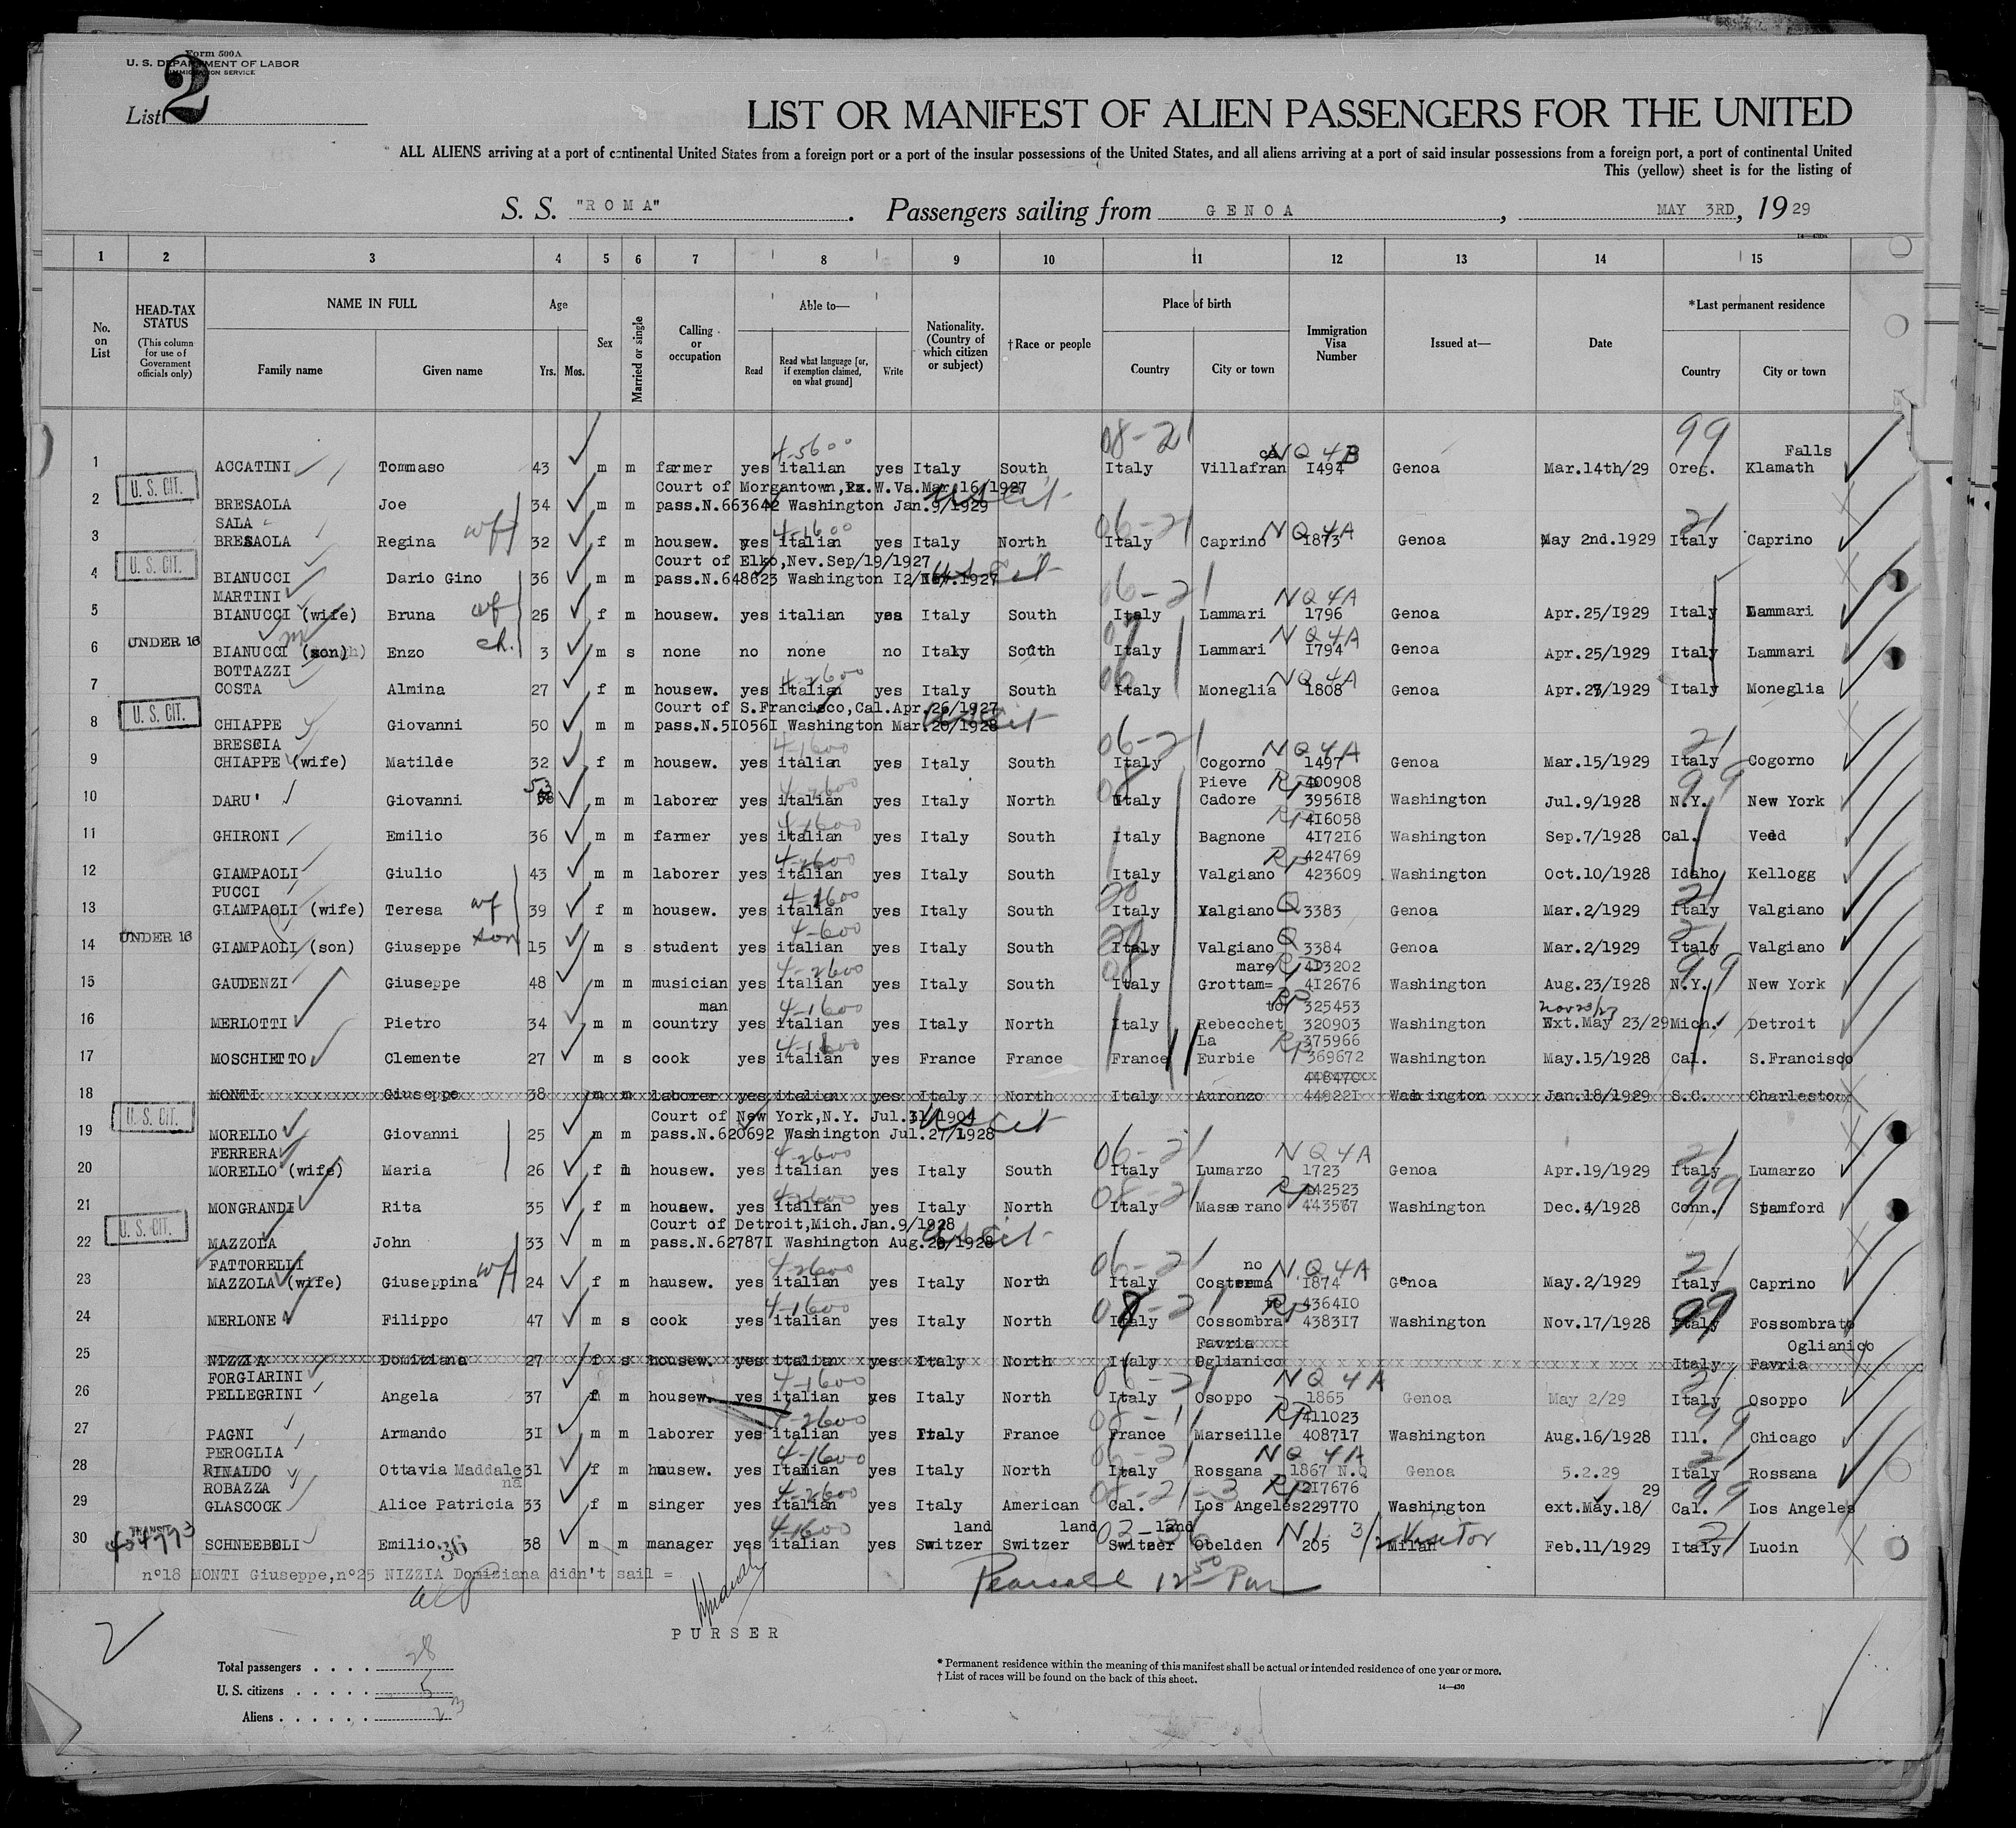 Form 500A
U. S. DEPARTMENT OF LABOR
IMMIGRATION SERVICE
List 2
LIST OR MANIFEST OF ALIEN PASSENGERS FOR THE UNITED
ALL ALIENS arriving at a port of continental United States from a foreign port or a port of the insular possessions of the United States, and all aliens arriving at a port of said insular possessions from a foreign port, a port of continental United
This (yellow) sheet is for the listing of
S. S. "ROMA". Passengers sailing from GENOA, MAY 3RD, 1929
1 2 3 4 5 6 7 8 9 10 11 12 13 14 15
No. on List
HEAD-TAX STATUS (This column for use of Government officials only)
NAME IN FULL Family name Given name
Age Yrs. Mos.
Sex
Married or single
Calling or occupation
Able to— Read Read what language [or, if exemption claimed, on what ground] Write
Nationality. (Country of which citizen or subject)
†Race or people
Place of birth Country City or town
Immigration Visa Number
Issued at—
Date
*Last permanent residence Country City or town
08-21 99
4-5600 ca NQ 4B Falls
1 ACCATINI Tommaso 43 m m farmer yes italian yes Italy South Italy Villafran 1494 Genoa Mar.14th/29 Oreg. Klamath
U. S. CIT. Court of Morgantown, W.Va.Mar.16/1927
2 BRESAOLA Joe 34 m m pass.N.663642 Washington Jan.9/1929 US Cit
SALA 4-1600 06-21 NQ 4A 21
3 BRESAOLA Regina wf 32 f m housew. yes italian yes Italy North Italy Caprino 1873 Genoa May 2nd.1929 Italy Caprino
U. S. CIT. Court of Elko,Nev.Sep/19/1927
4 BIANUCCI Dario Gino 36 m m pass.N.648623 Washington I2/Nov.1927 US Cit
MARTINI 06-21 NQ 4A
5 BIANUCCI (wife) Bruna wf 25 f m housew. yes italian yes Italy South Italy Lammari 1796 Genoa Apr.25/1929 Italy Lammari
UNDER 16 NQ 4A
6 BIANUCCI (son) Enzo ch. 3 m s none no none no Italy South Italy Lammari 1794 Genoa Apr.25/1929 Italy Lammari
BOTTAZZI 4-2600 06 NQ 4A
7 COSTA Almina 27 f m housew. yes italian yes Italy South Italy Moneglia 1808 Genoa Apr.27/1929 Italy Moneglia
U. S. CIT. Court of S.Francisco,Cal.Apr.26/1927
8 CHIAPPE Giovanni 50 m m pass.N.5I056I Washington Mar.20/1928 US Cit
BRESCIA 4-1600 06-21 NQ 4A 21
9 CHIAPPE (wife) Matilde 32 f m housew. yes italian yes Italy South Italy Cogorno 1497 Genoa Mar.15/1929 Italy Cogorno
53 4-2600 08 Pieve RP 400908 99
10 DARU' Giovanni m m laborer yes italian yes Italy North Italy Cadore 395618 Washington Jul.9/1928 N.Y. New York
4-1600 RP 416058
11 GHIRONI Emilio 36 m m farmer yes italian yes Italy South Italy Bagnone 417216 Washington Sep.7/1928 Cal. Veed
4-2600 RP 424769
12 GIAMPAOLI Giulio 43 m m laborer yes italian yes Italy South Italy Valgiano 423609 Washington Oct.10/1928 Idaho Kellogg
PUCCI 4-2600 20 21
13 GIAMPAOLI (wife) Teresa wf 39 f m housew. yes italian yes Italy South Italy Valgiano Q 3383 Genoa Mar.2/1929 Italy Valgiano
UNDER 16 4-600 20 21
14 GIAMPAOLI (son) Giuseppe son 15 m s student yes italian yes Italy South Italy Valgiano Q 3384 Genoa Mar.2/1929 Italy Valgiano
4-2600 08 mare RP 413202 99
15 GAUDENZI Giuseppe 48 m m musician yes italian yes Italy South Italy Grottam= 412676 Washington Aug.23/1928 N.Y. New York
man 4-1600 to RP 325453 Nov 23/27
16 MERLOTTI Pietro 34 m m country yes italian yes Italy North Italy Rebecchet 320903 Washington Ext.May 23/29 Mich. Detroit
4-1600 La RP 375966
17 MOSCHIETTO Clemente 27 m s cook yes italian yes France France France Eurbie 369672 Washington May.15/1928 Cal. S.Francisco
448470
18 MONTI Giuseppe 38 m m laborer yes italian yes Italy North Italy Auronzo 449221 Washington Jan.18/1929 S.C. Charleston
U. S. CIT. Court of New York,N.Y. Jul.31/1904
19 MORELLO Giovanni 25 m m pass.N.620692 Washington Jul.27/1928 US Cit
FERRERA 4-2600 06-21 NQ 4A 21
20 MORELLO (wife) Maria 26 f m housew. yes italian yes Italy South Italy Lumarzo 1723 Genoa Apr.19/1929 Italy Lumarzo
4-2600 08-21 RP 442523 99
21 MONGRANDI Rita 35 f m housew. yes italian yes Italy North Italy Masserano 443567 Washington Dec.4/1928 Conn. Stamford
U. S. CIT. Court of Detroit,Mich.Jan.9/1928
22 MAZZOLA John 33 m m pass.N.62787I Washington Aug.20/1928 US Cit
FATTORELLI 4-2600 06-21 no NQ 4A 21
23 MAZZOLA (wife) Giuseppina wf 24 f m hausew. yes italian yes Italy North Italy Costerma 1874 Genoa May.2/1929 Italy Caprino
4-1600 08-21 to RP 436410 99
24 MERLONE Filippo 47 m s cook yes italian yes Italy North Italy Cossombra 438317 Washington Nov.17/1928 Italy Fossombrato
Favria Oglianico
25 NIZZIA Domiziana 27 f s housew. yes italian yes Italy North Italy Oglianico Italy Favria
FORGIARINI 4-1600 06-21 NQ 4A 21
26 PELLEGRINI Angela 37 f m housew. yes italian yes Italy North Italy Osoppo 1865 Genoa May 2/29 Italy Osoppo
4-2600 08-11 RP 411023 99
27 PAGNI Armando 31 m m laborer yes italian yes Italy France France Marseille 408717 Washington Aug.16/1928 Ill. Chicago
PEROGLIA 4-1600 06-21 NQ 4A 21
28 RINALDO Ottavia Maddalena 31 f m housew. yes Italian yes Italy North Italy Rossana 1867 N.Q Genoa 5.2.29 Italy Rossana
ROBAZZA 4-2600 08-21-3 RP 217676 29 99
29 GLASCOCK Alice Patricia 33 f m singer yes italian yes Italy American Cal. Los Angeles 229770 Washington ext.May.18/ Cal. Los Angeles
TRANSIT 4-1600 land land land
30 SCHNEEBELI Emilio 36 38 m m manager yes italian yes Switzer Switzer Switzer Obelden 205 Milan Visitor Feb.11/1929 Italy Luoin
n°18 MONTI Giuseppe,n°25 NIZZIA Domiziana didn't sail =
Pearsall 12 50 Pm
PURSER
2
Total passengers . . . . 28
U. S. citizens . . . . . 5
Aliens . . . . . . 23
* Permanent residence within the meaning of this manifest shall be actual or intended residence of one year or more.
† List of races will be found on the back of this sheet.
14—430